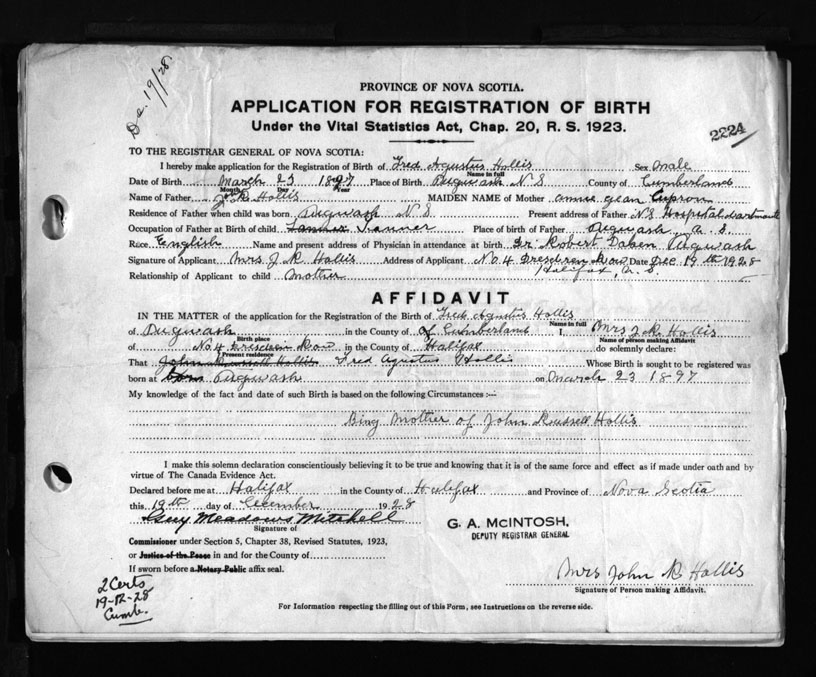 Dec. 19/28
PROVINCE OF NOVA SCOTIA.
APPLICATION FOR REGISTRATION OF BIRTH
Under the Vital Statistics Act, Chap. 20, R. S. 1923.
2224
TO THE REGISTRAR GENERAL OF NOVA SCOTIA:
I hereby make application for the Registration of Birth of Fred Agustus Hollis Sex Male
Name in full
Date of Birth March 23 1897 Place of Birth Pugwash N S County of Cumberland
Month Day Year
Name of Father J R Hollis MAIDEN NAME of Mother Annie Jean
Residence of Father when child was born Pugwash N S Present address of Father N S Hospital
Occupation of Father at Birth of child Tanner Place of birth of Father Pugwash N. S.
Race English Name and present address of Physician in attendance at birth Dr Robert Pugwash
Signature of Applicant Mrs J R Hollis Address of Applicant No 4 Dresden Row Date Dec 19th 1928
Halifax, N. S.
Relationship of Applicant to child Mother
AFFIDAVIT
IN THE MATTER of the application for the Registration of the Birth of Fred Agustus Hollis
Name in full
of Pugwash in the County of Cumberland I, Mrs J R Hollis
Birth place Name of person making Affidavit
of No 4 Dresden Row in the County of Halifax do solemnly declare:
Present residence
That John Russell Hollis Fred Agustus Hollis Whose Birth is sought to be registered was
born at born Pugwash on March 23 1897
My knowledge of the fact and date of such Birth is based on the following Circumstances :—
Bing Mother of John Russell Hollis
I make this solemn declaration conscientiously believing it to be true and knowing that it is of the same force and effect as if made under oath and by
virtue of The Canada Evidence Act.
Declared before me at Halifax in the County of Halifax and Province of Nova Scotia
this 19th day of December 1928
Guy Meadows Mitchell
Signature of
G. A. McINTOSH,
DEPUTY REGISTRAR GENERAL
Commissioner under Section 5, Chapter 38, Revised Statutes, 1923,
or Justice of the Peace in and for the County of
If sworn before a Notary Public affix seal.
Mrs John R Hollis
Signature of Person making Affidavit.
2 Certs
19-12-28
Cumb.
For Information respecting the filling out of this Form, see Instructions on the reverse side.